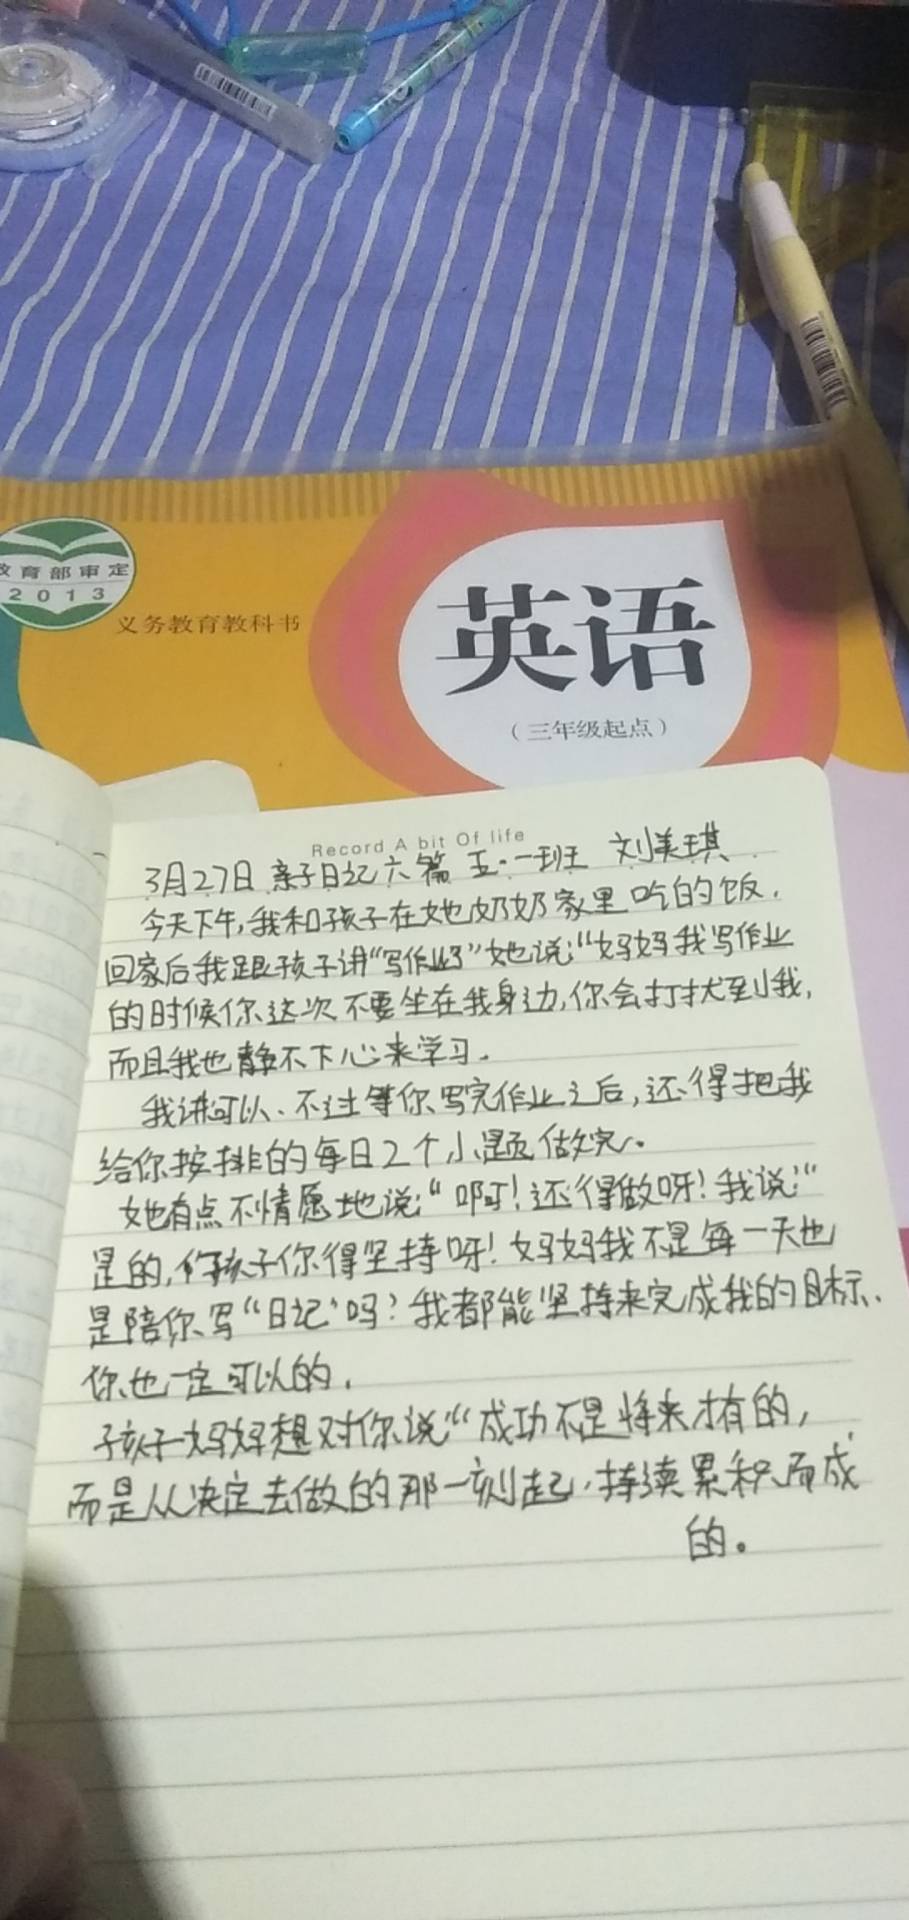 教育部审定
2013
义务教育教科书
英语
（三年级起点）
Record A bit Of life
3月27日 亲子日记六篇 五·一班 刘美琪
今天下午,我和孩子在她奶奶家里吃的饭.
回家后我跟孩子讲“写作业了”她说:“妈妈我写作业
的时候你这次不要坐在我身边,你会打扰到我,
而且我也静不下心来学习.
我讲可以、不过等你写完作业之后,还得把我
给你按排的每日2个小题做完。
她有点不情愿地说:“啊!还得做呀!我说:“
是的,孩子你得坚持呀!妈妈我不是每一天也
是陪你写“日记”吗?我都能坚持来完成我的目标、
你也一定可以的.
孩子妈妈想对你说“成功不是将来才有的,
而是从决定去做的那一刻起,持续累积而成
的。